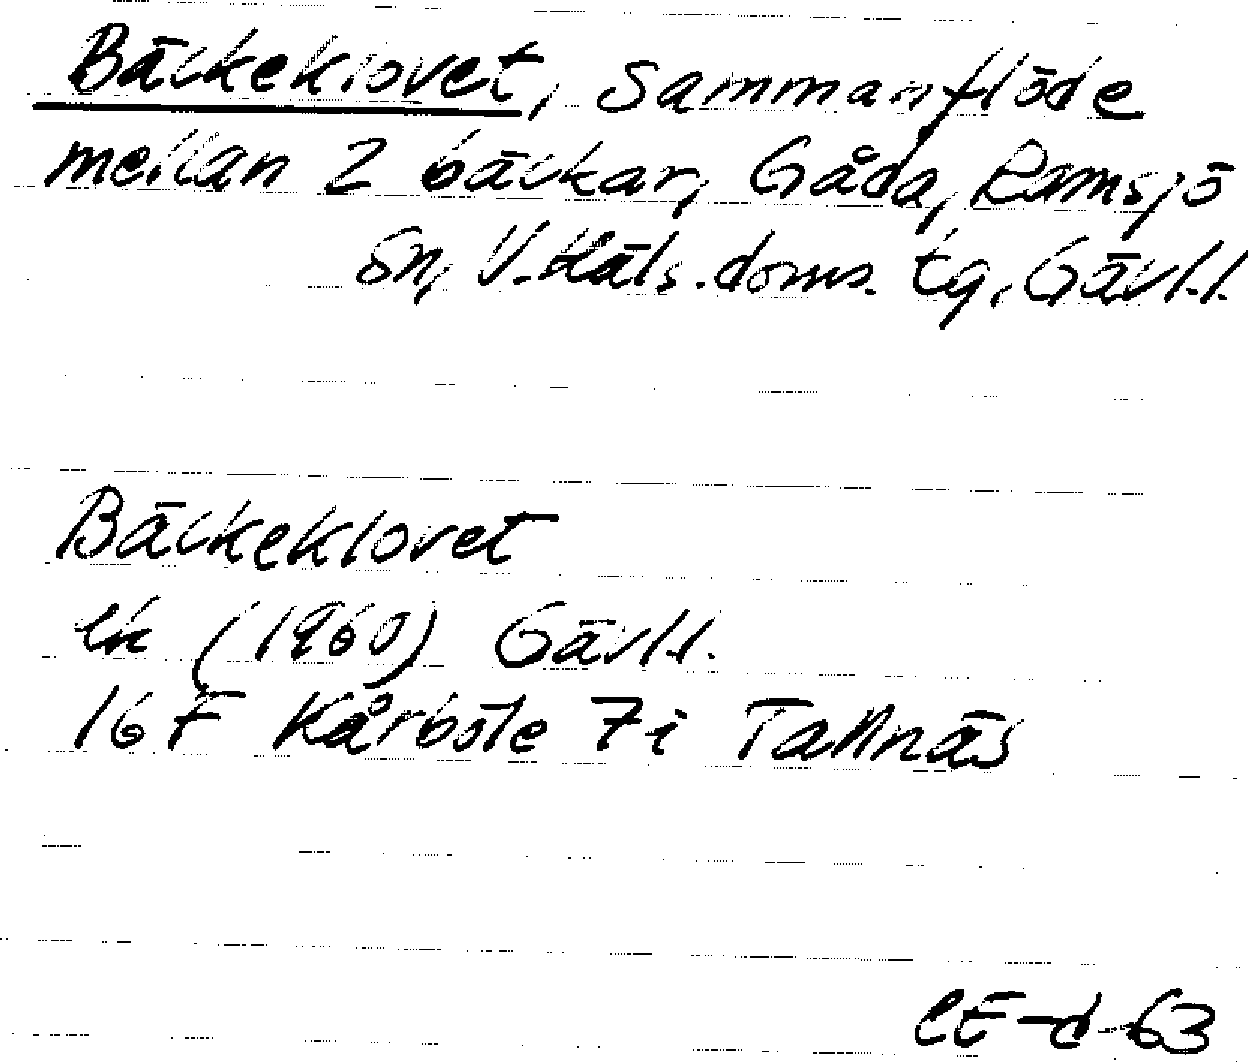 Bäckeklovet, Sammanflöde
mellan 2 bäckar, Gåda, Ramsjö
sn, V. Häls. doms. tg, Gävl.l.
Bäckeklovet
ek (1960) Gävl.l.
16 F Kårböle 7i Tallnäs
CE-d-63